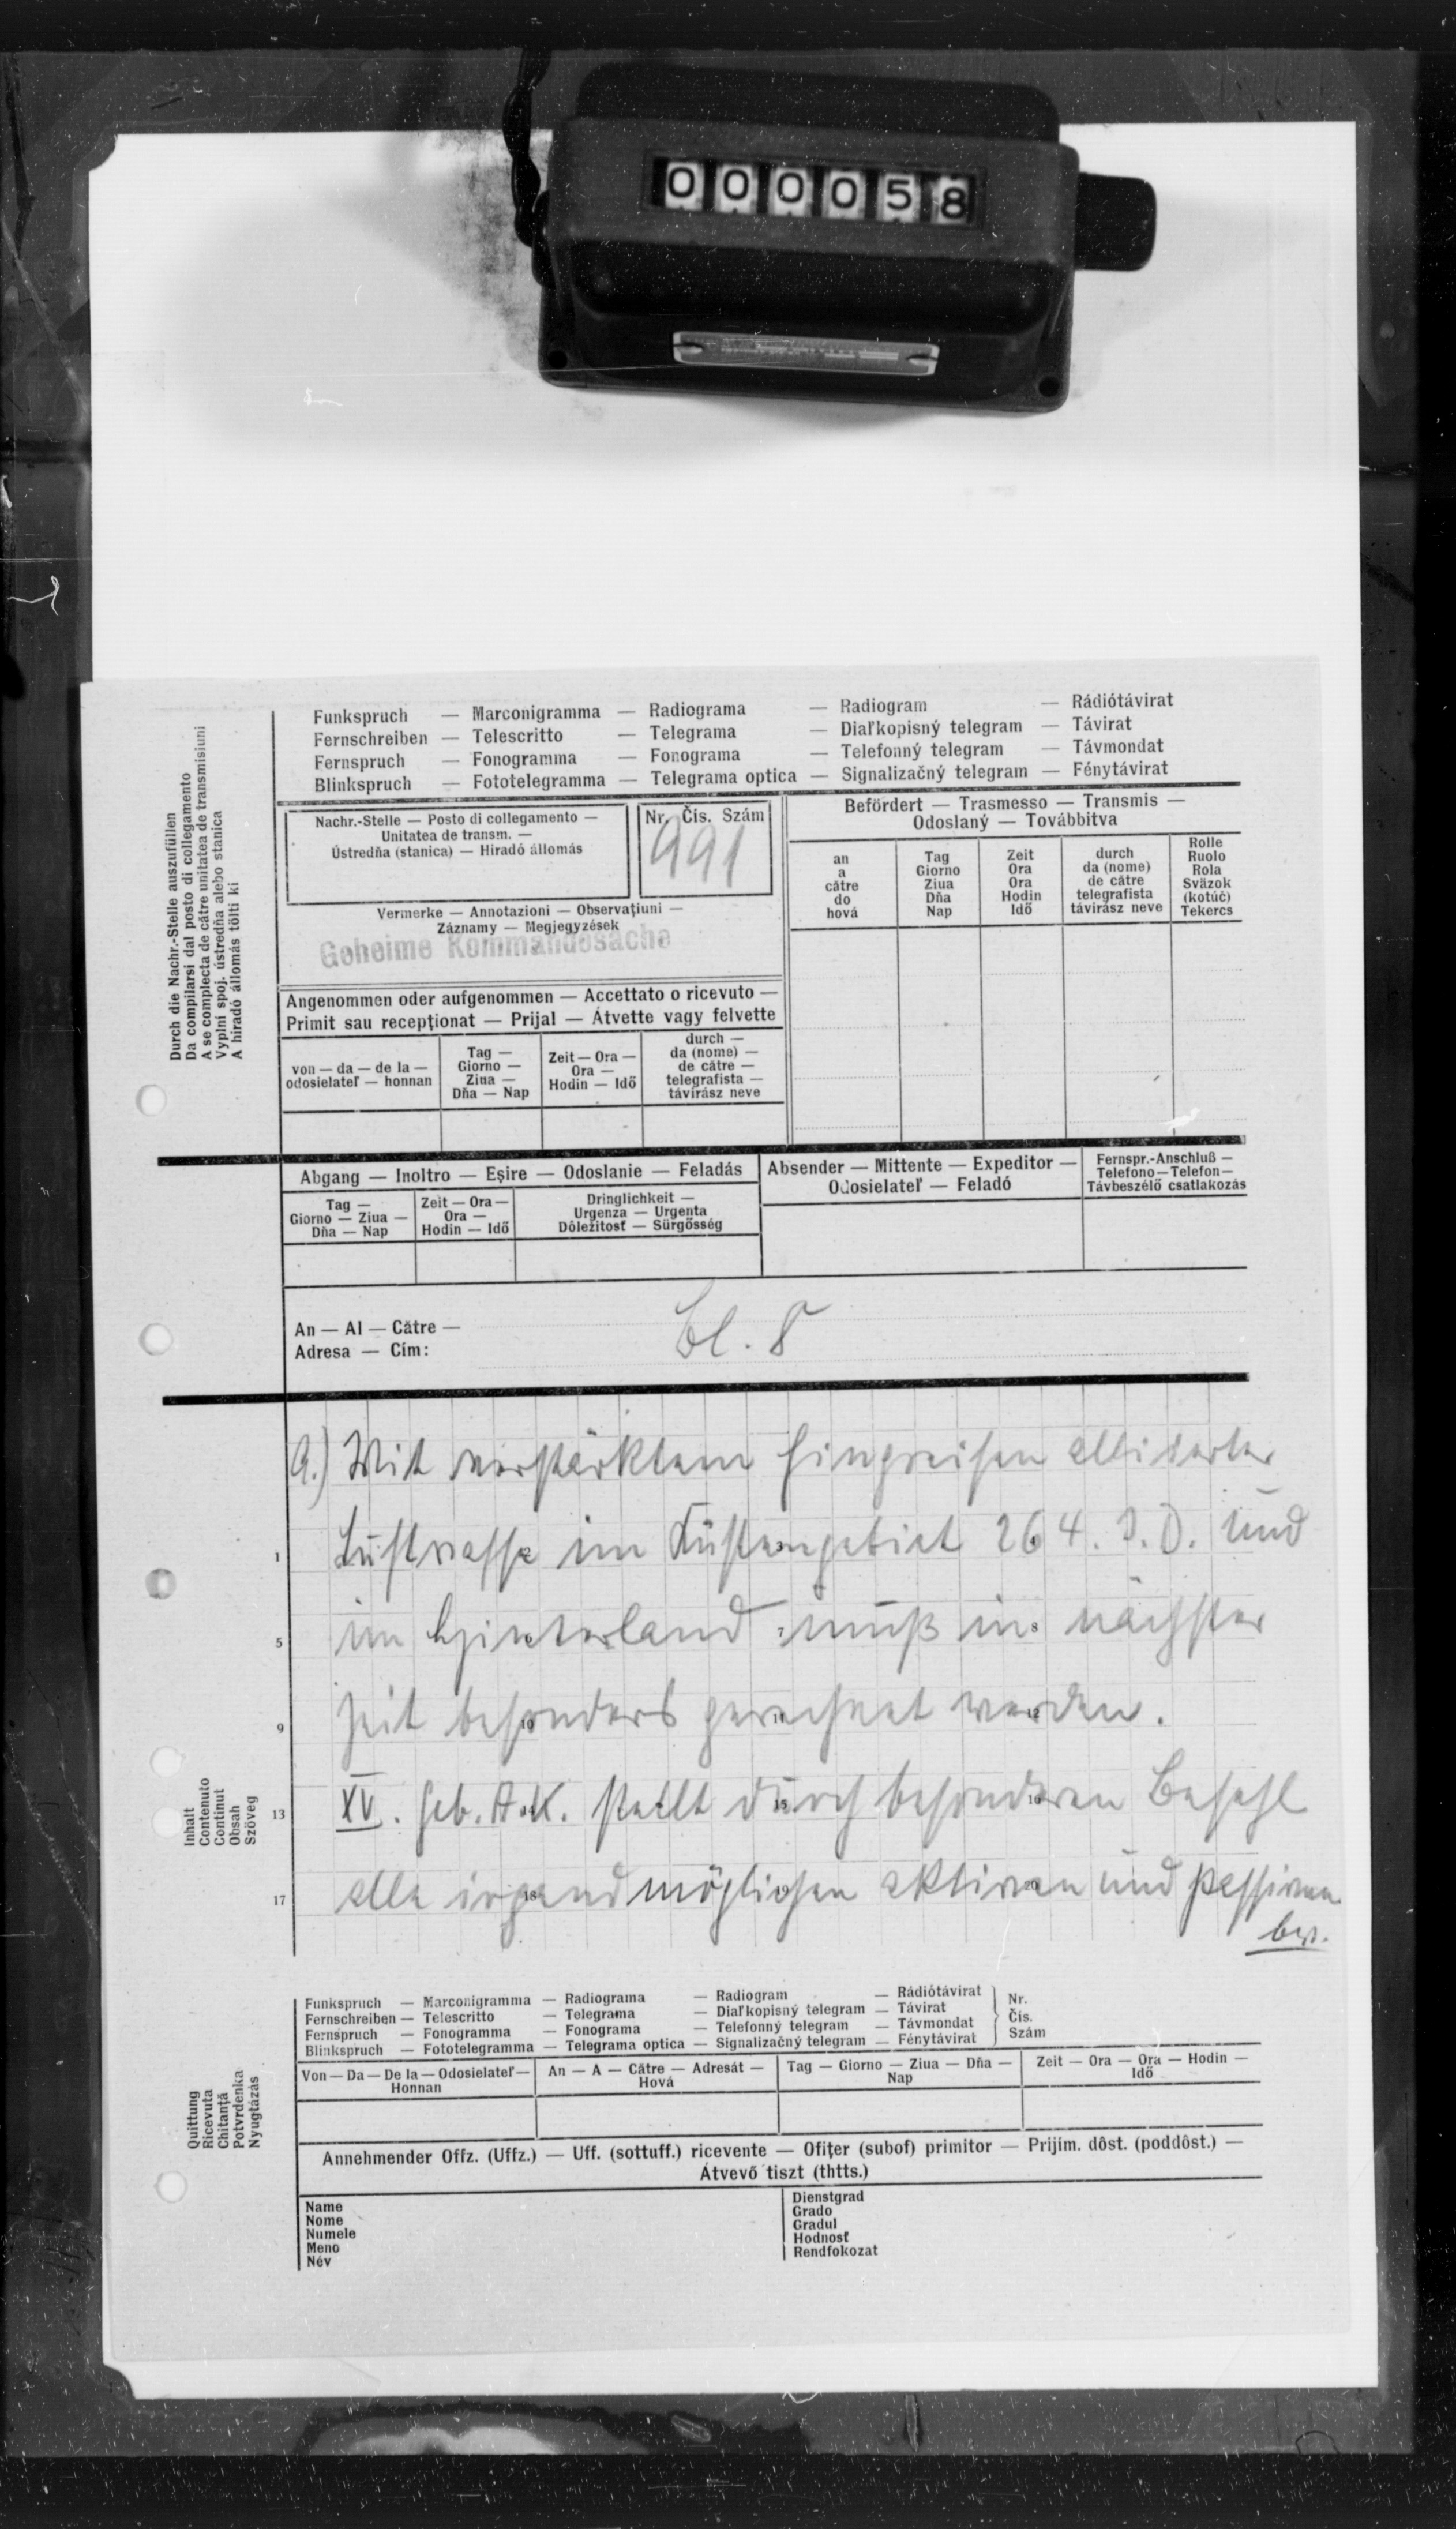 000058
Funkspruch — Marconigramma — Radiograma — Radiogram — Rádiótávirat
Fernschreiben — Telescritto — Telegrama — Diaľkopisný telegram — Távirat
Fernspruch — Fonogramma — Fonograma — Telefonný telegram — Távmondat
Blinkspruch — Fototelegramma — Telegrama optica — Signalizačný telegram — Fénytávirat
Durch die Nachr.-Stelle auszufüllen
Da compilarsi dal posto di collegamento
A se complecta de către unitatea de transmisiuni
Vyplní spoj. ústredňa alebo stanica
A hiradó állomás tölti ki
Nachr.-Stelle — Posto di collegamento —
Unitatea de transm. —
Ústredňa (stanica) — Hiradó állomás
Nr. Čis. Szám
991
Vermerke — Annotazioni — Observaţiuni —
Záznamy — Megjegyzések
Geheime Kommandosache
Angenommen oder aufgenommen — Accettato o ricevuto —
Primit sau recepţionat — Prijal — Átvette vagy felvette
von — da — de la —
odosielateľ — honnan
Tag —
Giorno —
Ziua —
Dňa — Nap
Zeit — Ora —
Ora —
Hodin — Idő
durch —
da (nome) —
de către —
telegrafista —
távirász neve
Befördert — Trasmesso — Transmis —
Odoslaný — Továbbitva
an
a
către
do
hová
Tag
Giorno
Ziua
Dňa
Nap
Zeit
Ora
Ora
Hodin
Idő
durch
da (nome)
de către
telegrafista
távirász neve
Rolle
Ruolo
Rola
Sväzok
(kotúč)
Tekercs
Abgang — Inoltro — Eşire — Odoslanie — Feladás
Tag —
Giorno — Ziua —
Dňa — Nap
Zeit — Ora —
Ora —
Hodin — Idő
Dringlichkeit —
Urgenza — Urgenta
Dôležitosť — Sürgősség
Absender — Mittente — Expeditor —
Odosielateľ — Feladó
Fernspr.-Anschluß —
Telefono — Telefon —
Távbeszélő csatlakozás
An — Al — Către —
Adresa — Cím:
Bl. 8
9.) Mit verstärktem Eingreifen alliierter
1 Luftwaffe im Küstengebiet 264. I.D. und
5 im Hinterland muß in nächster
9 Zeit besonders gerechnet werden.
13 XV. Geb. A.K. stellt durch besonderen Befehl
17 alle irgend möglichen aktiven und passiven
Inhalt
Contenuto
Continut
Obsah
Szöveg
Funkspruch — Marconigramma — Radiograma — Radiogram — Rádiótávirat
Fernschreiben — Telescritto — Telegrama — Diaľkopisný telegram — Távirat
Fernspruch — Fonogramma — Fonograma — Telefonný telegram — Távmondat
Blinkspruch — Fototelegramma — Telegrama optica — Signalizačný telegram — Fénytávirat
Nr.
Čis.
Szám
Quittung
Ricevuta
Chitanţă
Potvrdenka
Nyugtázás
Von — Da — De la — Odosielateľ —
Honnan
An — A — Către — Adresát —
Hová
Tag — Giorno — Ziua — Dňa —
Nap
Zeit — Ora — Ora — Hodin —
Idő
Annehmender Offz. (Uffz.) — Uff. (sottuff.) ricevente — Ofiţer (subof) primitor — Prijím. dôst. (poddôst.) —
Átvevő tiszt (thtts.)
Name
Nome
Numele
Meno
Név
Dienstgrad
Grado
Gradul
Hodnosť
Rendfokozat